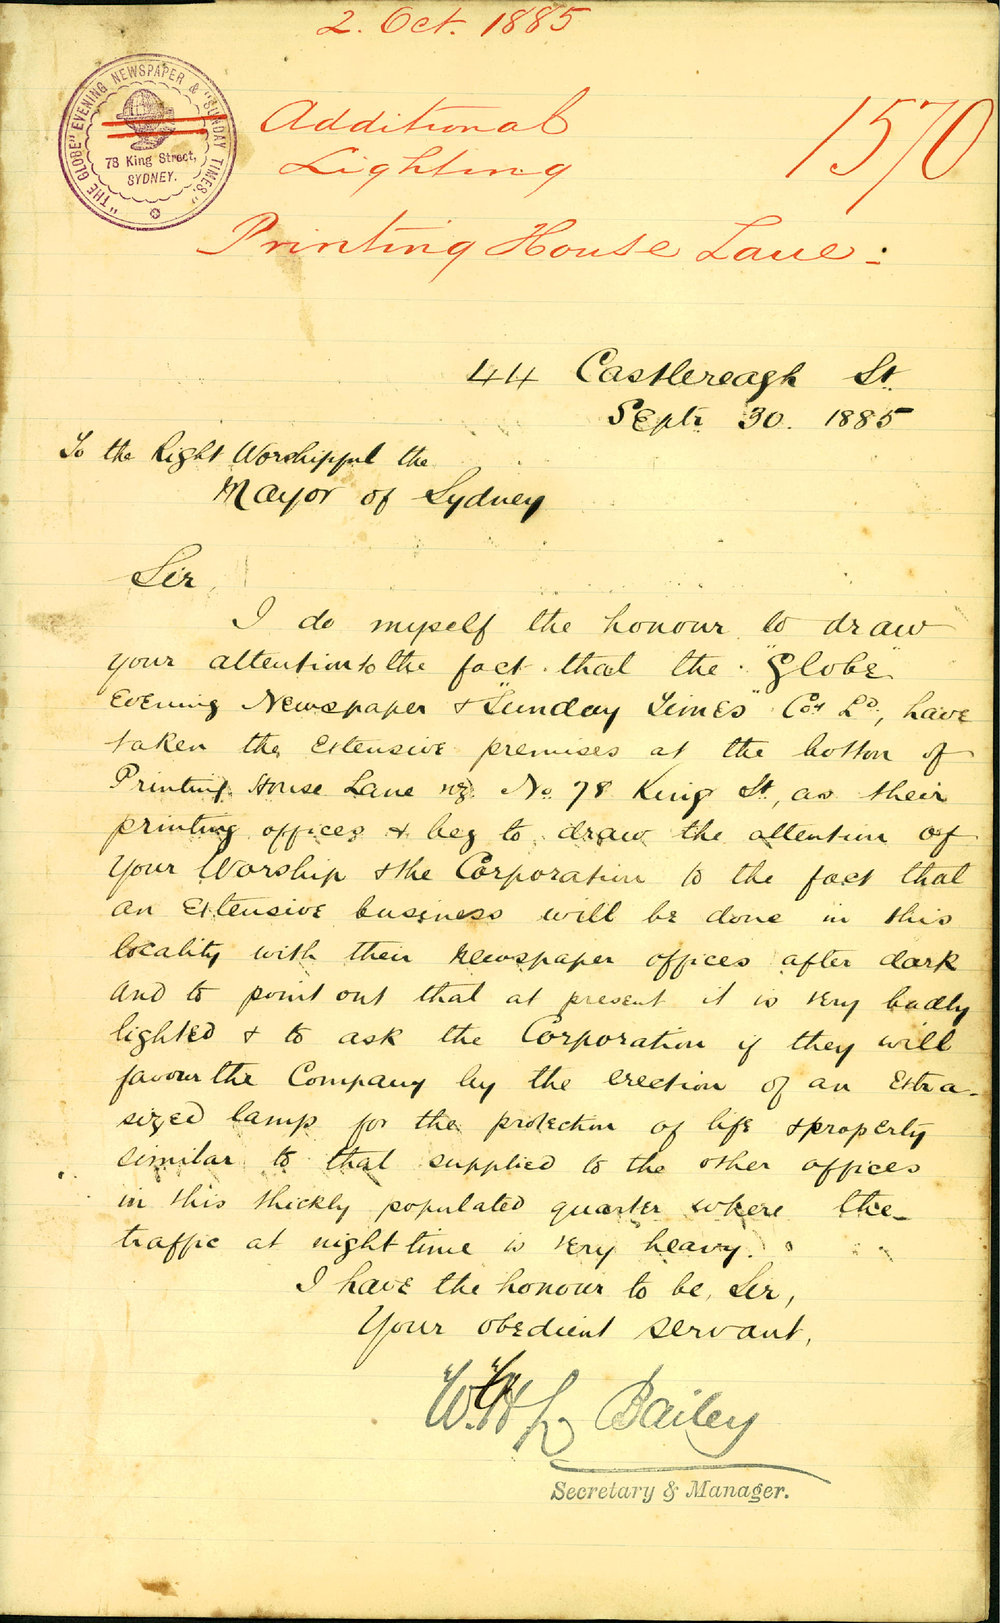 2. Oct. 1885
"THE GLOBE" EVENING NEWSPAPER & "SUNDAY TIMES,"
78 King Street,
SYDNEY.
Additional
Lighting
1570
Printing House Lane :
44 Castlereagh St.
Septr 30. 1885
To the Right Worshipful the
Mayor of Sydney
Sir,
I do myself the honour to draw
your attention to the fact that the "Globe"
Evening Newspaper & "Sunday Times" Coy Ld, have
taken the extensive premises at the bottom of
Printing House Lane viz. No. 78 King St, as their
printing offices & beg to draw the attention of
Your Worship & the Corporation to the fact that
an extensive business will be done in this
locality with their newspaper offices after dark
and to point out that at present it is very badly
lighted & to ask the Corporation if they will
favour the Company by the erection of an extra-
sized lamp for the protection of life & property
similar to that supplied to the other offices
in this thickly populated quarter where the
traffic at night time is very heavy.
I have the honour to be, Sir,
Your obedient servant,
W. H. L. Bailey
Secretary & Manager.